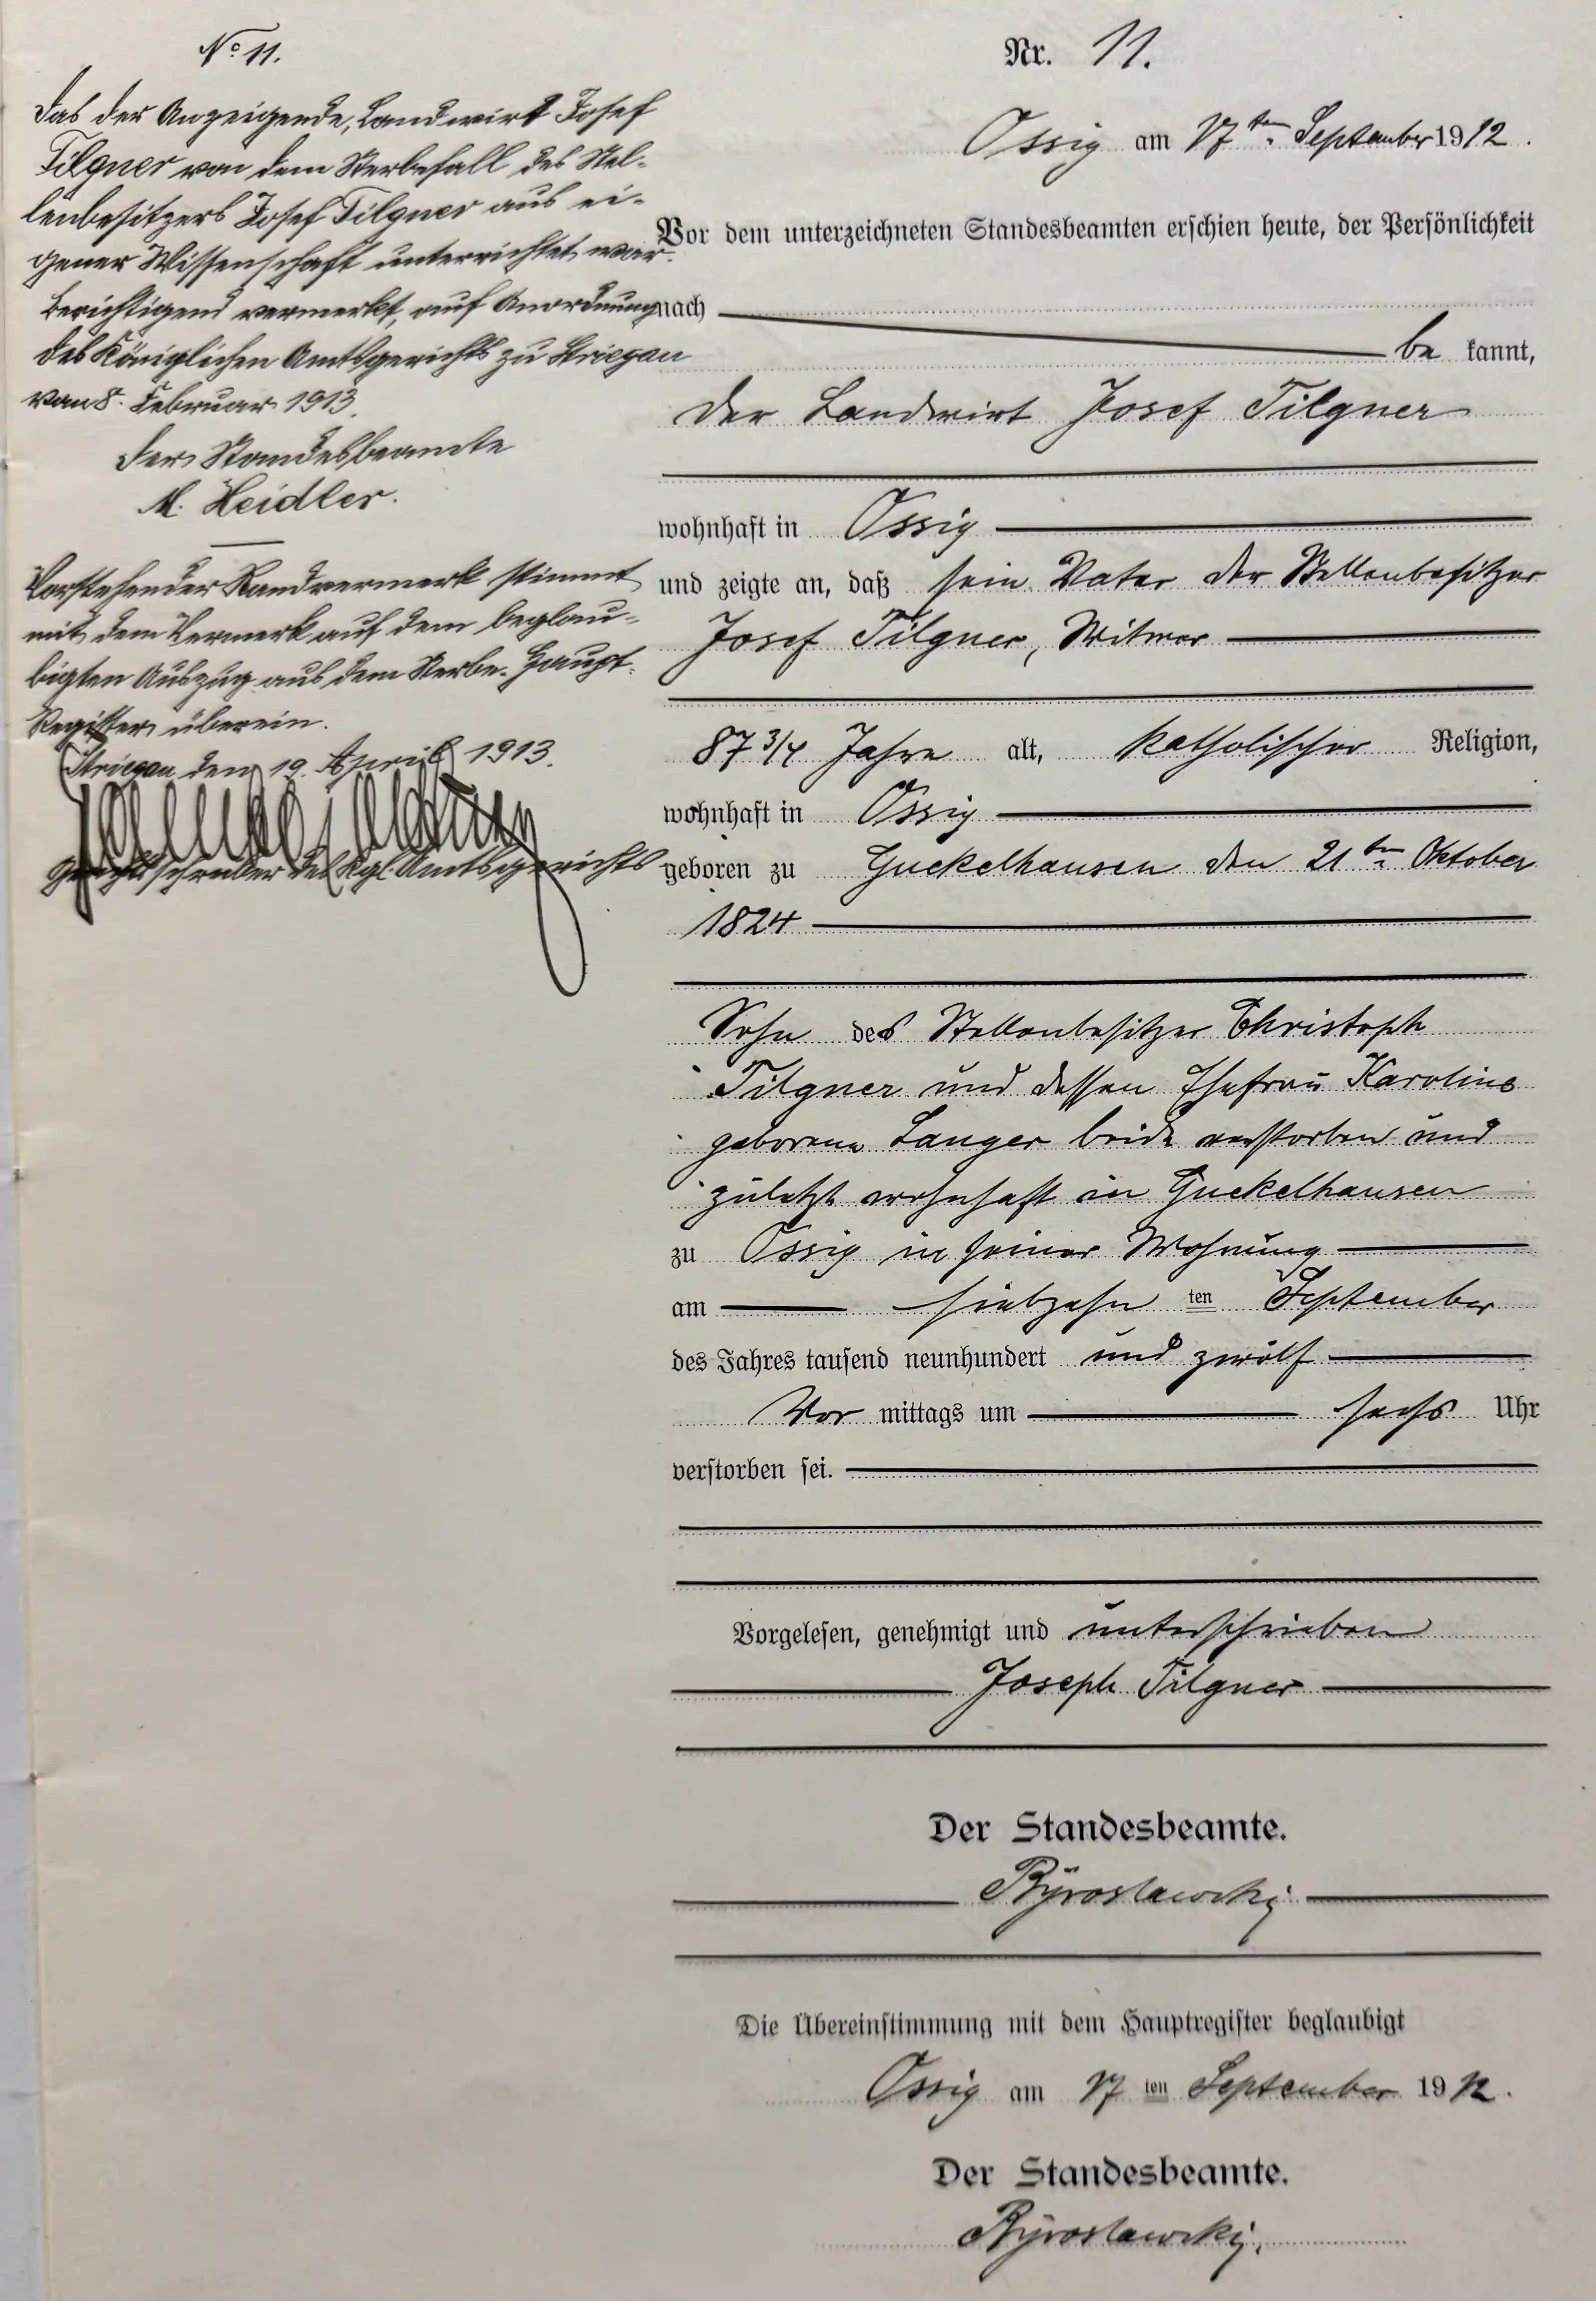 No 11.
Das der Anzeigende, Landwirt Josef
Tilgner von dem Sterbefall des Stel-
lenbesitzers Josef Tilgner aus ei-
gener Wissenschaft unterrichtet war.
Berichtigend vermerkt, auf Anordnung
des Königlichen Amtsgerichts zu Striegau
von 8. Februar 1913.
Der Standesbeamte
M. Heidler.
Vorstehender Randvermerk stimmt
mit dem Vermerk auf dem beglau-
bigten Auszug aus dem Sterbe-Haupt-
Register überein.
Striegau den 19. April 1913.
Gerichtsschreiber des Kgl. Amtsgerichts
Nr. 11.
Ossig am 17ten September 1912.
Vor dem unterzeichneten Standesbeamten erschien heute, der Persönlichkeit
nach
be kannt,
der Landwirt Josef Tilgner
wohnhaft in Ossig
und zeigte an, daß sein Vater der Stellenbesitzer
Josef Tilgner, Witwer
87 3/4 Jahre alt, katholischer Religion,
wohnhaft in Ossig
geboren zu Guckelhausen den 21ten Oktober
1824
Sohn des Stellenbesitzer Christoph
Tilgner und dessen Ehefrau Karoline
geborene Langer beide verstorben und
zuletzt wohnhaft in Guckelhausen
zu Ossig in seiner Wohnung
am siebzehn ten September
des Jahres tausend neunhundert und zwölf
Vor mittags um sechs Uhr
verstorben sei.
Vorgelesen, genehmigt und unterschrieben
Joseph Tilgner
Der Standesbeamte.
Die Übereinstimmung mit dem Hauptregister beglaubigt
Ossig am 17 ten September 1912.
Der Standesbeamte.